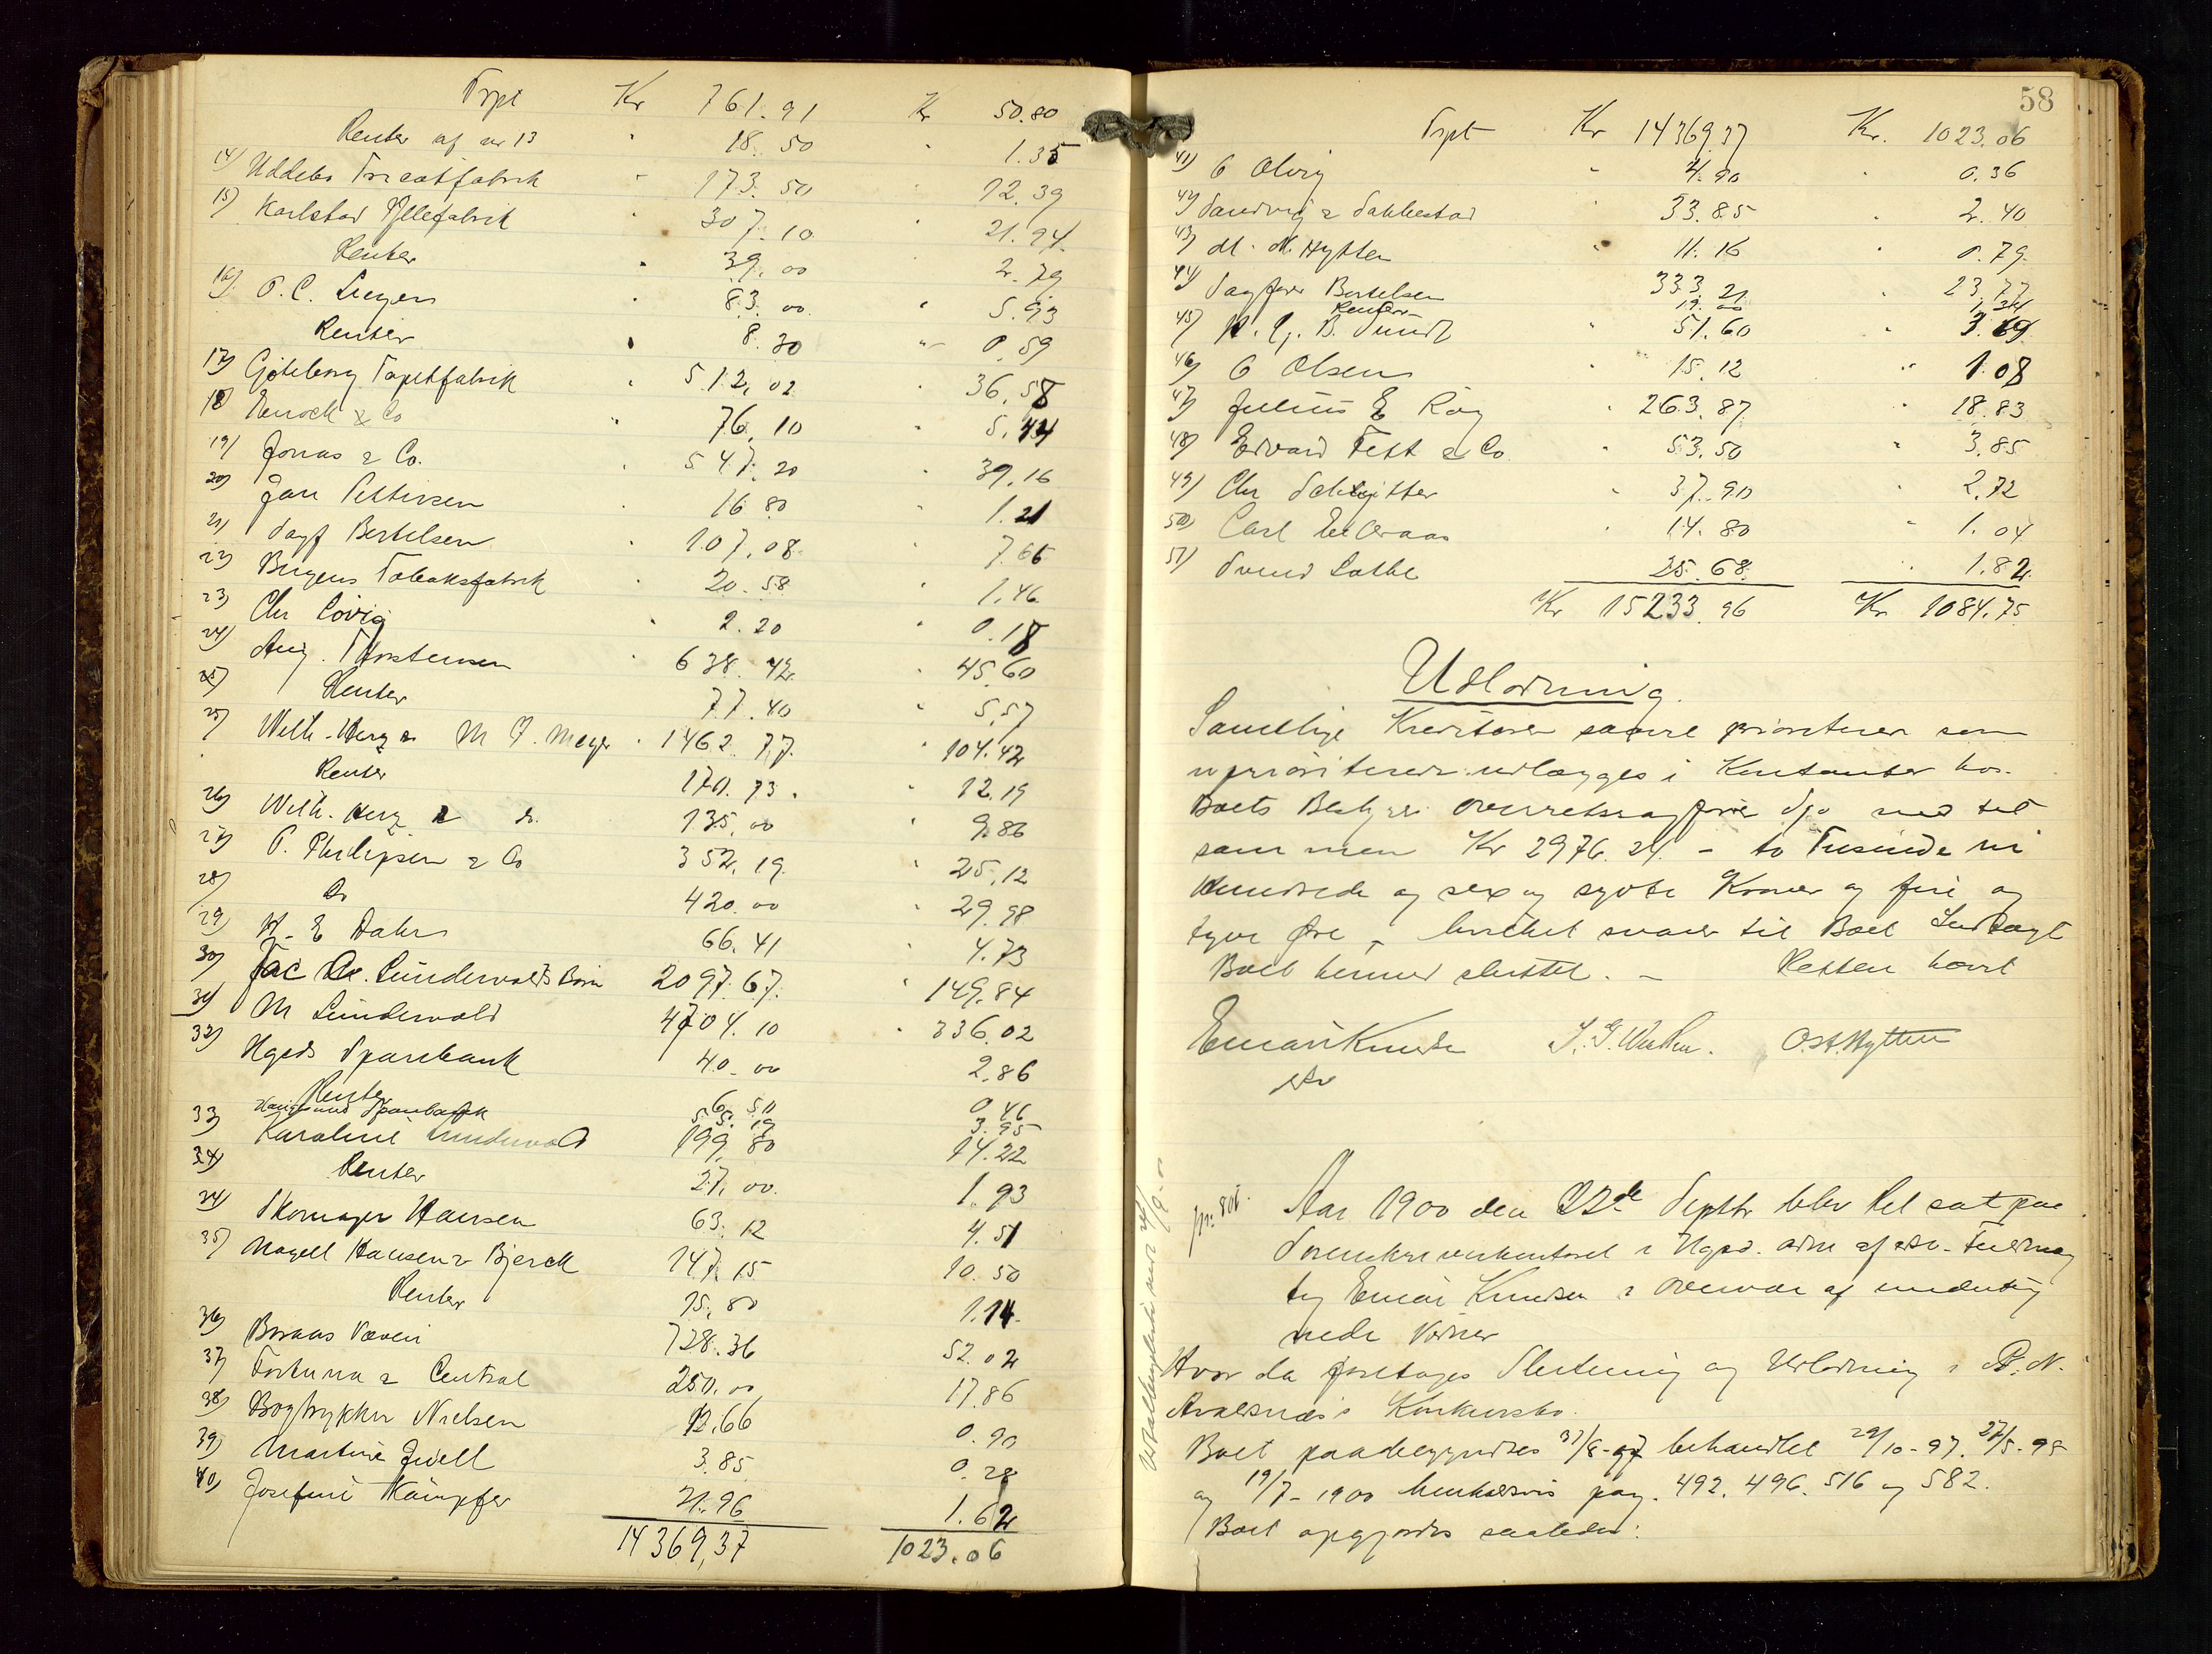 Trpt Kr 761.91 Kr 50.80
Renter af nr 13 " 18.50 " 1.35
14) Uddebo Tricotfabrik " 173.50 " 12.39
15) Karlstad Yllefabrik " 307.10 " 21.94
Renter " 39.00 2.79
16) P. C. " 83.00 " 5.93
Renter " 8.30 " 0.59
17) Göteborg Tapetfabrik " 512.02 " 36.58
18) & Co " 76.10 " 5.44
19) Jonas & Co. " 547.20 " 39.16
20) Jan Pettersen " 16.80 " 1.21
21) Sagf Bertelsen " 107.08 " 7.66
22) Bergens Tobaksfabrik " 20.58 " 1.46
23) Chr Lövig " 2.20 " 0.18
24) Aug. Thorstensen " 638.42 " 45.60
25) Renter 77.40 " 5.57
25) Wilh. Herz & M J. Meyer " 1462.77 " 104.42
Renter 170.73 " 12.19
26) Wilh. Herz & do. 135.00 " 9.86
27) P. Philipsen & Co 352.19 " 25.12
28) Do 420.00 " 29.98
29) H. E Dahr 66.41 " 4.73
30) Jac Chr. Sundervolds Børn 2097.67 " 149.84
31) M Sundervold 4704.10 " 336.02
32) Hgsds Sparebank 40.00 2.86
Renter 6.50 0.46
Haugesund Sparebank 55.19 3.95
33) Karoline Sundervold 199.80 14.22
34) Renter 27.00 1.93
34) Skomager Hansen 63.12 4.51
35) Nagell Hansen & Bjerck 147.15 10.50
Renter 15.80 1.14
36) Boraas Væveri 728.36 52.02
37) Fortuna & Central 250.00 17.86
38) Bogtrykker Nielsen 12.66 0.90
39) Martine 3.85 0.28
40) Josefine Kämpfer 21.96 1.62
14369,37 1023.06
58
Trpt Kr 14369.37 Kr. 1023.06
41) O Olvig " 4.90 " 0.36
42) Sandvig & Sakkestad " 33.85 " 2.40
43) M. M. Hytten " 11.16 0.79
44) Sagfører Bertelsen 333.21 " 23.77
Renter 19.00 1.34
45) B. Sundt " 51.60 " 3.69
46) O Olsen " 15.12 " 1.08
47) Julius E Roy " 263.87 " 18.83
48) Edvard Tett & Co " 53.50 " 3.85
49) Chr Schlytter " 37.90 " 2.72
50) Carl " 14.80 " 1.04
51) Svend Lothe 25.68 " 1.82
Kr 15233.96 Kr 1084.75
Udlodning.
Samtlige Kreditorer saavel prioriterer som
uprioriterede udlægges i Kontanter hos
Boets Bestyrer Overretssagfører med til
sammen Kr 2976.24 - to Tusinde ni
Hundrede og sex og sytti Kroner og fire og
tyve Øre, hvilket svarer til Boet Indtægt
Boet hermed sluttet. – Retten hævet
Einar Knudsen O. St. Hytten
Aar 1900 den 22de Septbr blev Ret sat paa
Sorenskriverkontoret i Hgsd. adm af edsv. Fuldmæg
tig Einar Knudsen i Overvær af underteg
nede Vidner
Hvor da foretoges Slutning og Udlodning i R. N.
Avaldsnæs's Konkursbo.
Boet paabegyndtes 31/8-97 behandlet 29/10-97. 27/5-98
og 19/7-1900 henholdsvis pag. 492. 496. 516 og 582.
Boet opgjordes saaledes: